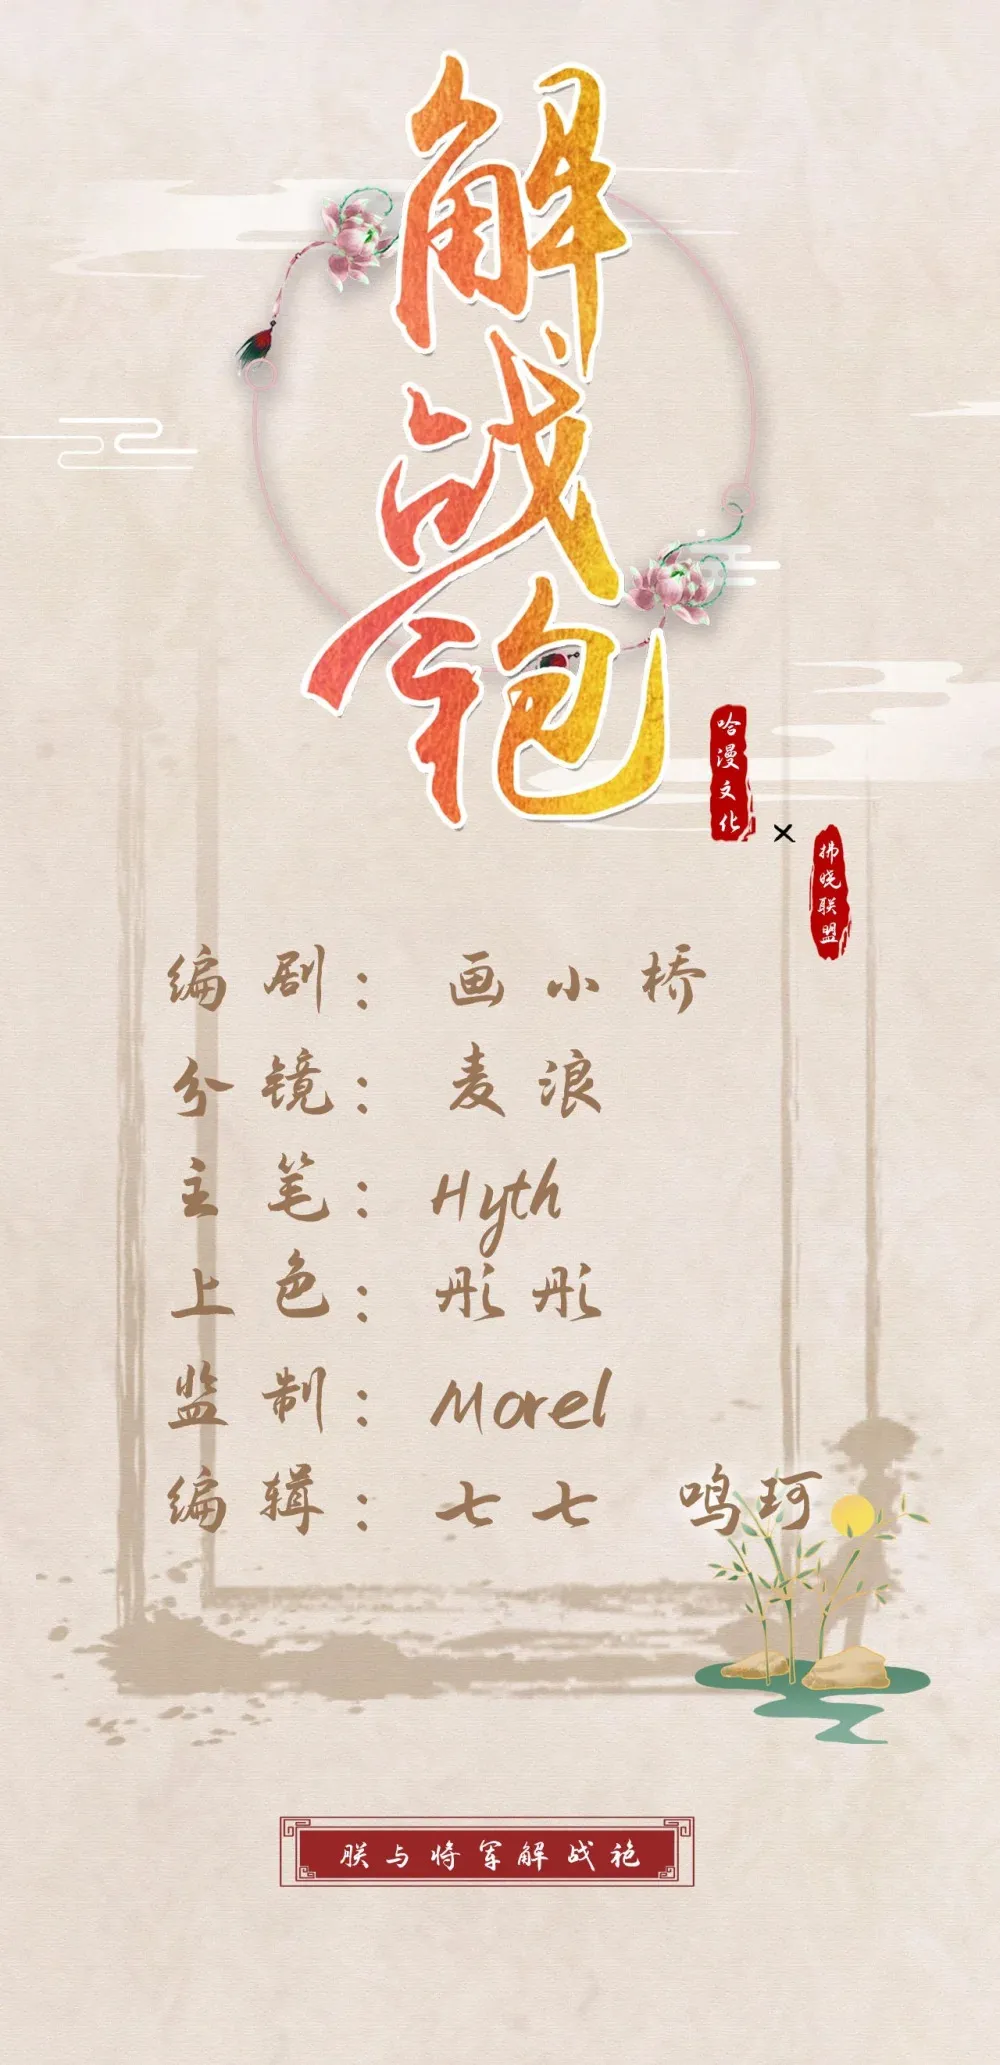 解战袍
哈漫文化
×
拂晓联盟
编剧：画小桥
分镜：麦浪
主笔：Hyth
上色：彤彤
监制：Morel
编辑：七七 鸣珂
朕与将军解战袍